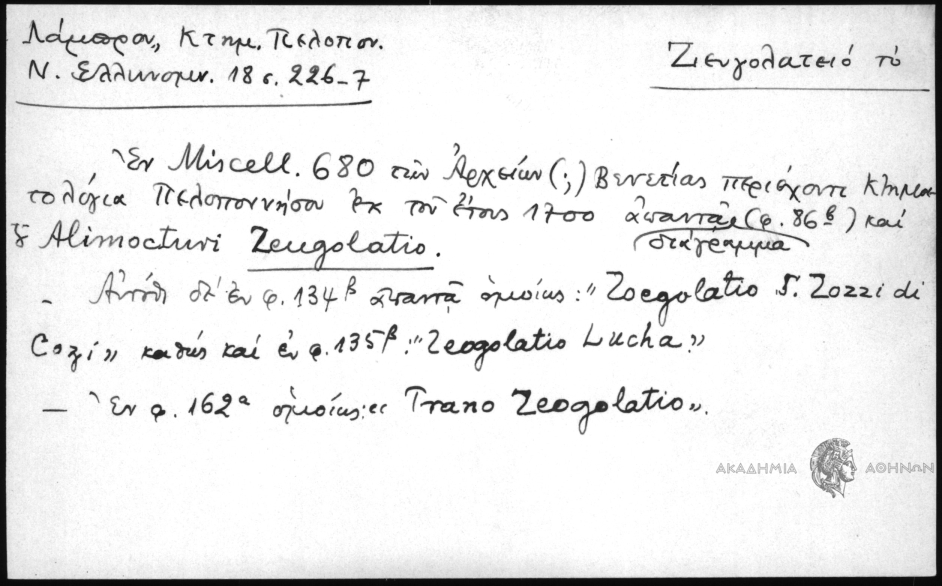 Λάμπρου, Κτημ. Πελοπον.
Ν. Ελληνομν. 18 σ. 226-7
Ζευγολατειό τό
Ἐν Miscell. 680 τῶν Ἀρχείων (;) Βενετίας περιέχοντι κτημα-
τολόγια Πελοποννήσου ἐκ τοῦ ἔτους 1700 ἀπαντᾷ (φ. 86β) καί
διάγραμμα
Alimocturi Zeugolatio.
- Αὐτόθι δέ ἐν φ. 134β ἀπαντᾷ ὁμοίως: "Zoegolatio S. Zozzi di
Cozi" καθώς καί ἐν φ. 135β: "Zeogolatio Lucha"
- Ἐν φ. 162α ὁμοίως: "Trano Zeogolatio".
ΑΚΑΔΗΜΙΑ ΑΘΗΝΩΝ